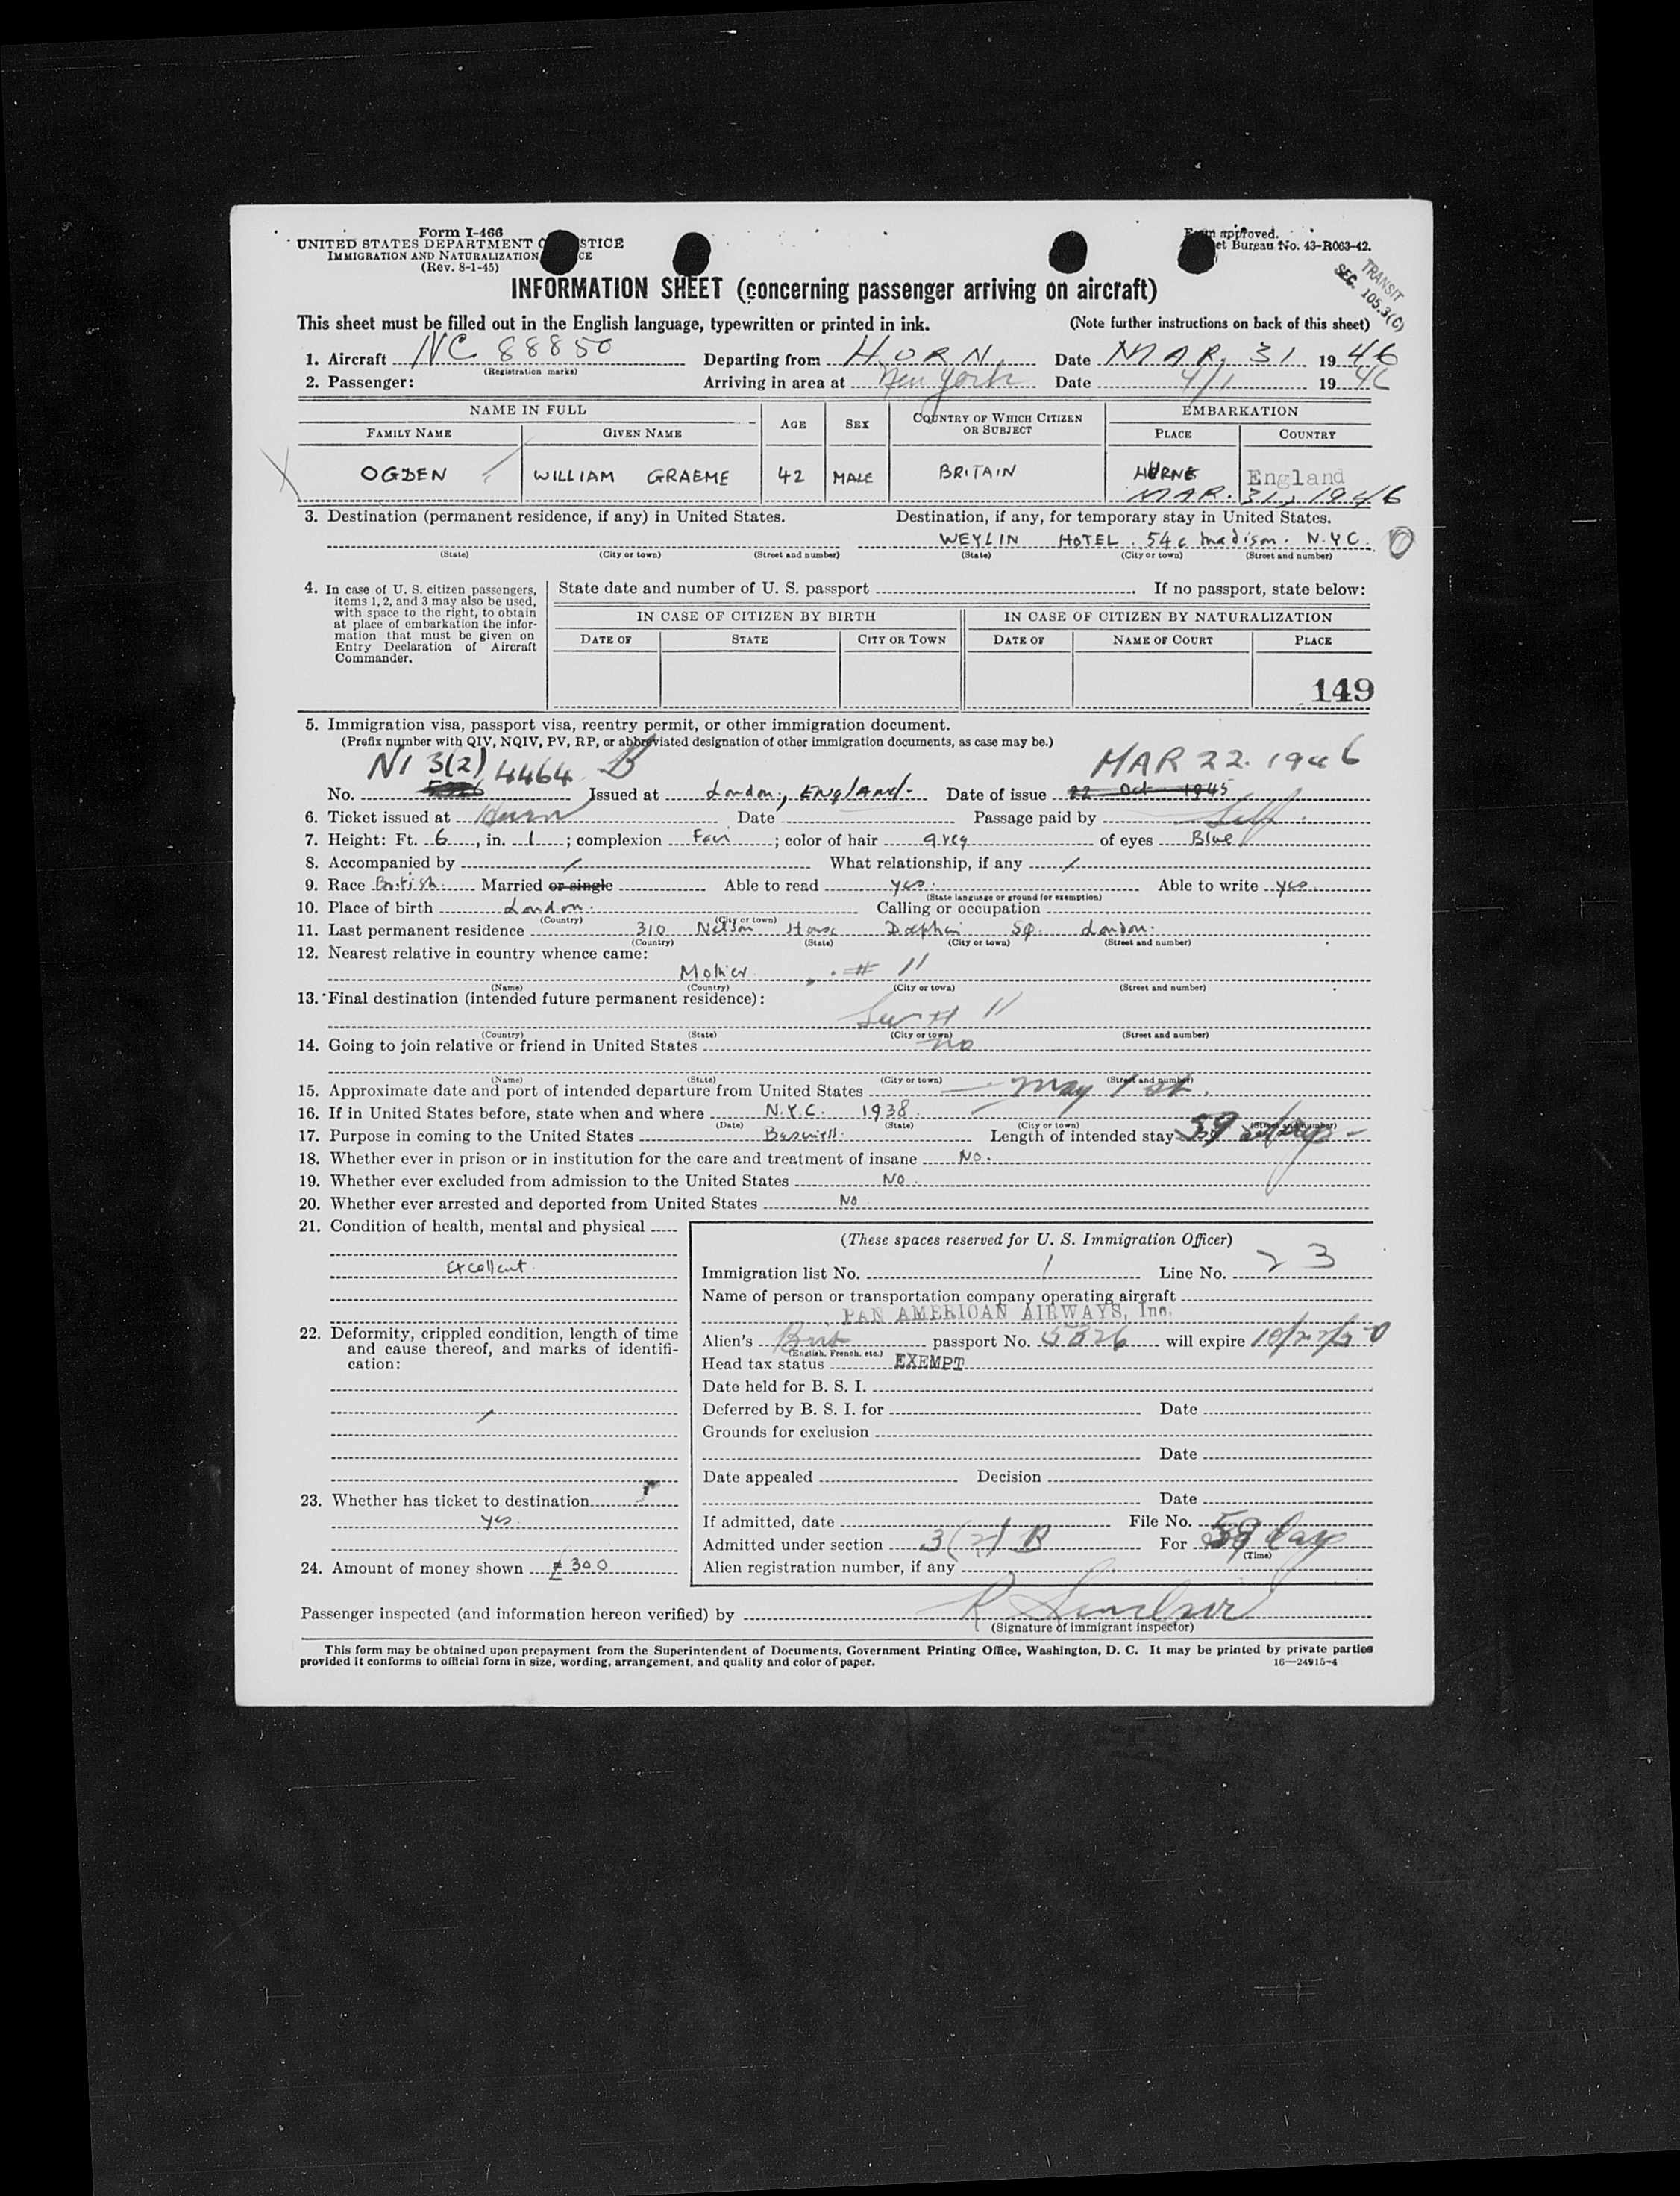 Form I-466
UNITED STATES DEPARTMENT STICE
IMMIGRATION AND NATURALIZATION CE
(Rev. 8-1-45)
Form approved.
et Bureau No. 43-R063-42.
TRANSIT
SEC. 105.3(C)
INFORMATION SHEET (concerning passenger arriving on aircraft)
This sheet must be filled out in the English language, typewritten or printed in ink. (Note further instructions on back of this sheet)
1. Aircraft NC 88850 Departing from HURN. Date MAR. 31 1946
(Registration marks)
2. Passenger: Arriving in area at New York Date 4/1 1946
NAME IN FULL AGE SEX COUNTRY OF WHICH CITIZEN OR SUBJECT EMBARKATION
FAMILY NAME GIVEN NAME PLACE COUNTRY
X OGDEN WILLIAM GRAEME 42 MALE BRITAIN HURNE England
MAR. 31, 1946
3. Destination (permanent residence, if any) in United States. Destination, if any, for temporary stay in United States.
WEYLIN HOTEL. 54 c Madison. N.Y.C. O
(State) (City or town) (Street and number) (State) (City or town) (Street and number)
4. In case of U. S. citizen passengers, items 1, 2, and 3 may also be used, with space to the right, to obtain at place of embarkation the information that must be given on Entry Declaration of Aircraft Commander.
State date and number of U. S. passport If no passport, state below:
IN CASE OF CITIZEN BY BIRTH IN CASE OF CITIZEN BY NATURALIZATION
DATE OF STATE CITY OR TOWN DATE OF NAME OF COURT PLACE
149
5. Immigration visa, passport visa, reentry permit, or other immigration document.
(Prefix number with QIV, NQIV, PV, RP, or abbreviated designation of other immigration documents, as case may be.)
NI 3(2) 4464 B MAR 22. 1946
No. 5326 Issued at London, England. Date of issue 22 Oct 1945
6. Ticket issued at Hurn Date Passage paid by Self.
7. Height: Ft. 6, in. 1; complexion Fair; color of hair grey of eyes Blue
8. Accompanied by / What relationship, if any /
9. Race British. Married or single Able to read yes. Able to write yes.
(State language or ground for exemption)
10. Place of birth London. Calling or occupation
(Country) (City or town)
11. Last permanent residence 310 Nelson House Dolphin Sq. London.
(Country) (State) (City or town) (Street and number)
12. Nearest relative in country whence came:
Mother. # 11
(Name) (Country) (City or town) (Street and number)
13. Final destination (intended future permanent residence):
See # 11
(Country) (State) (City or town) (Street and number)
14. Going to join relative or friend in United States no
(Name) (State) (City or town) (Street and number)
15. Approximate date and port of intended departure from United States May 1st.
16. If in United States before, state when and where N.Y.C. 1938.
(Date) (State) (City or town) (Street and number)
17. Purpose in coming to the United States Length of intended stay 59 days
18. Whether ever in prison or in institution for the care and treatment of insane No.
19. Whether ever excluded from admission to the United States No.
20. Whether ever arrested and deported from United States No
21. Condition of health, mental and physical
Excellent.
22. Deformity, crippled condition, length of time and cause thereof, and marks of identification:
/
23. Whether has ticket to destination
yes
24. Amount of money shown £300
(These spaces reserved for U. S. Immigration Officer)
Immigration list No. 1 Line No. 23
Name of person or transportation company operating aircraft
PAN AMERICAN AIRWAYS, Inc.
Alien's Brit passport No. 5326 will expire 10/22/50
(English, French, etc.)
Head tax status EXEMPT
Date held for B. S. I.
Deferred by B. S. I. for Date
Grounds for exclusion
Date
Date appealed Decision
Date
If admitted, date File No.
Admitted under section 3(2) B For 59 days
(Time)
Alien registration number, if any
Passenger inspected (and information hereon verified) by R Sinclair
(Signature of immigrant inspector)
This form may be obtained upon prepayment from the Superintendent of Documents, Government Printing Office, Washington, D. C. It may be printed by private parties
provided it conforms to official form in size, wording, arrangement, and quality and color of paper. 16—24915-4